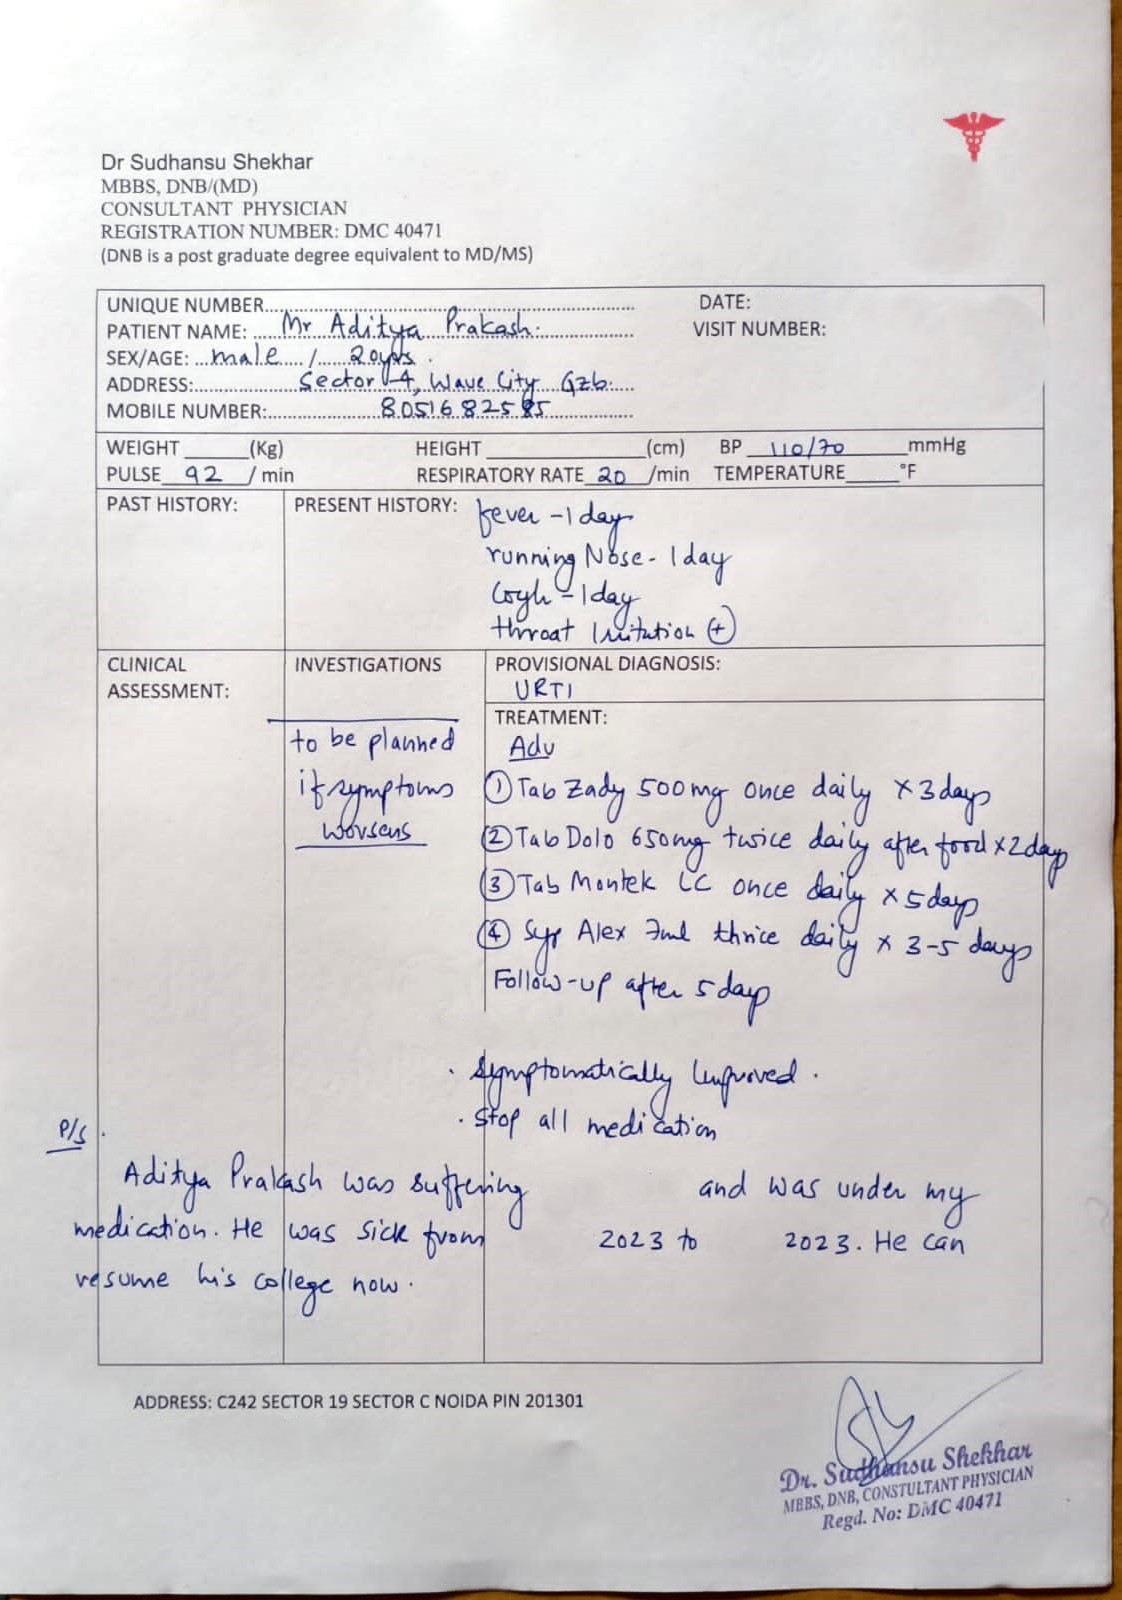 Dr Sudhansu Shekhar
MBBS, DNB/(MD)
CONSULTANT PHYSICIAN
REGISTRATION NUMBER: DMC 40471
(DNB is a post graduate degree equivalent to MD/MS)
UNIQUE NUMBER....................................................................... DATE:
PATIENT NAME: ....Mr Aditya Prakash.................... VISIT NUMBER:
SEX/AGE: ...male..../......20yrs.
ADDRESS:....................Sector-4, Wave City Gzb.....
MOBILE NUMBER:......................8051682585..................
WEIGHT ______(Kg) HEIGHT ____________(cm) BP __110/70______mmHg
PULSE__92__/ min RESPIRATORY RATE_20__/min TEMPERATURE_____°F
PAST HISTORY: PRESENT HISTORY: fever - 1 day
running Nose - 1 day
Cough - 1 day
throat Irritation (+)
CLINICAL ASSESSMENT: INVESTIGATIONS PROVISIONAL DIAGNOSIS:
URTI
to be planned
if symptoms
worsens
TREATMENT:
Adv
① Tab Zady 500mg once daily × 3 days
② Tab Dolo 650mg twice daily after food × 2 days
③ Tab Montek LC once daily × 5 days
④ Syp Alex 7ml thrice daily × 3-5 days
Follow-up after 5 days
. Symptomatically Improved .
. Stop all medication
P/S .
Aditya Prakash was suffering and was under my
medication. He was sick from 2023 to 2023. He can
resume his college now.
ADDRESS: C242 SECTOR 19 SECTOR C NOIDA PIN 201301
Dr. Sudhansu Shekhar
MBBS, DNB, CONSTULTANT PHYSICIAN
Regd. No: DMC 40471